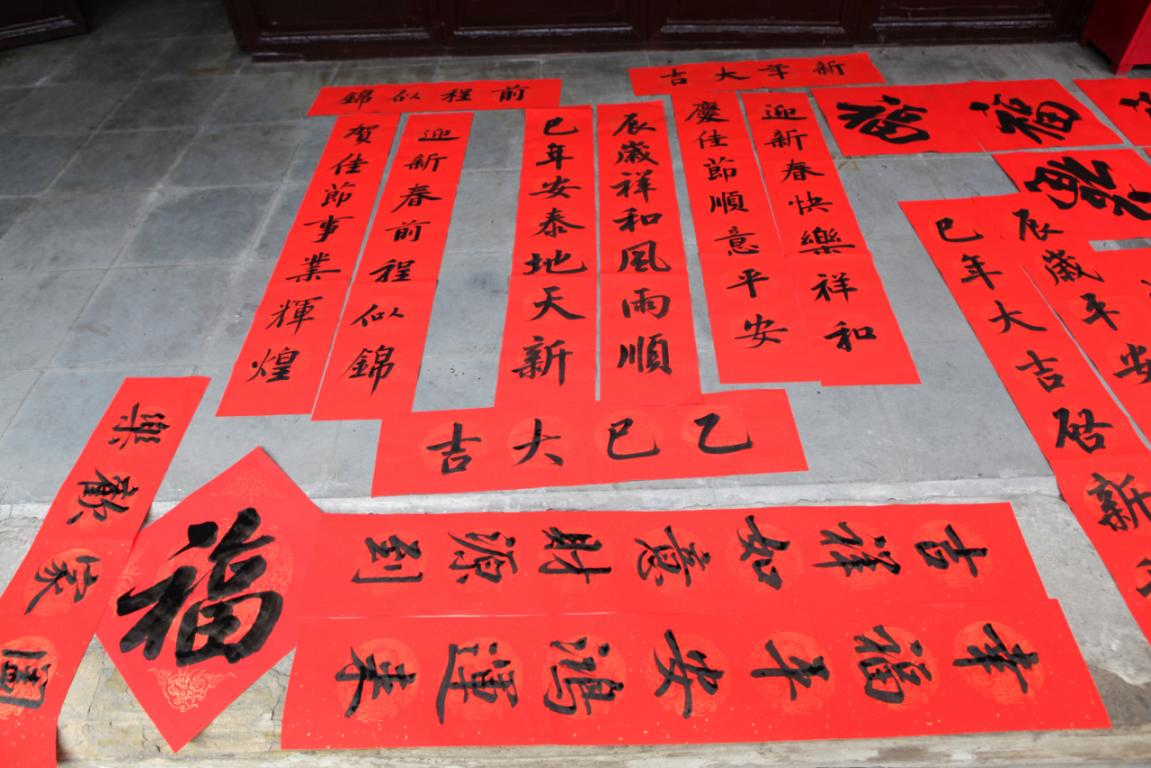 前程似錦
迎新春前程似錦
賀佳節事業輝煌
辰歲祥和風雨順
巳年安泰地天新
新年大吉
迎新春快樂祥和
慶佳節順意平安
福
福
辰歲平安
巳年大吉啟新
乙巳大吉
闔家歡樂
福
吉祥如意財源到
幸福平安鴻運來